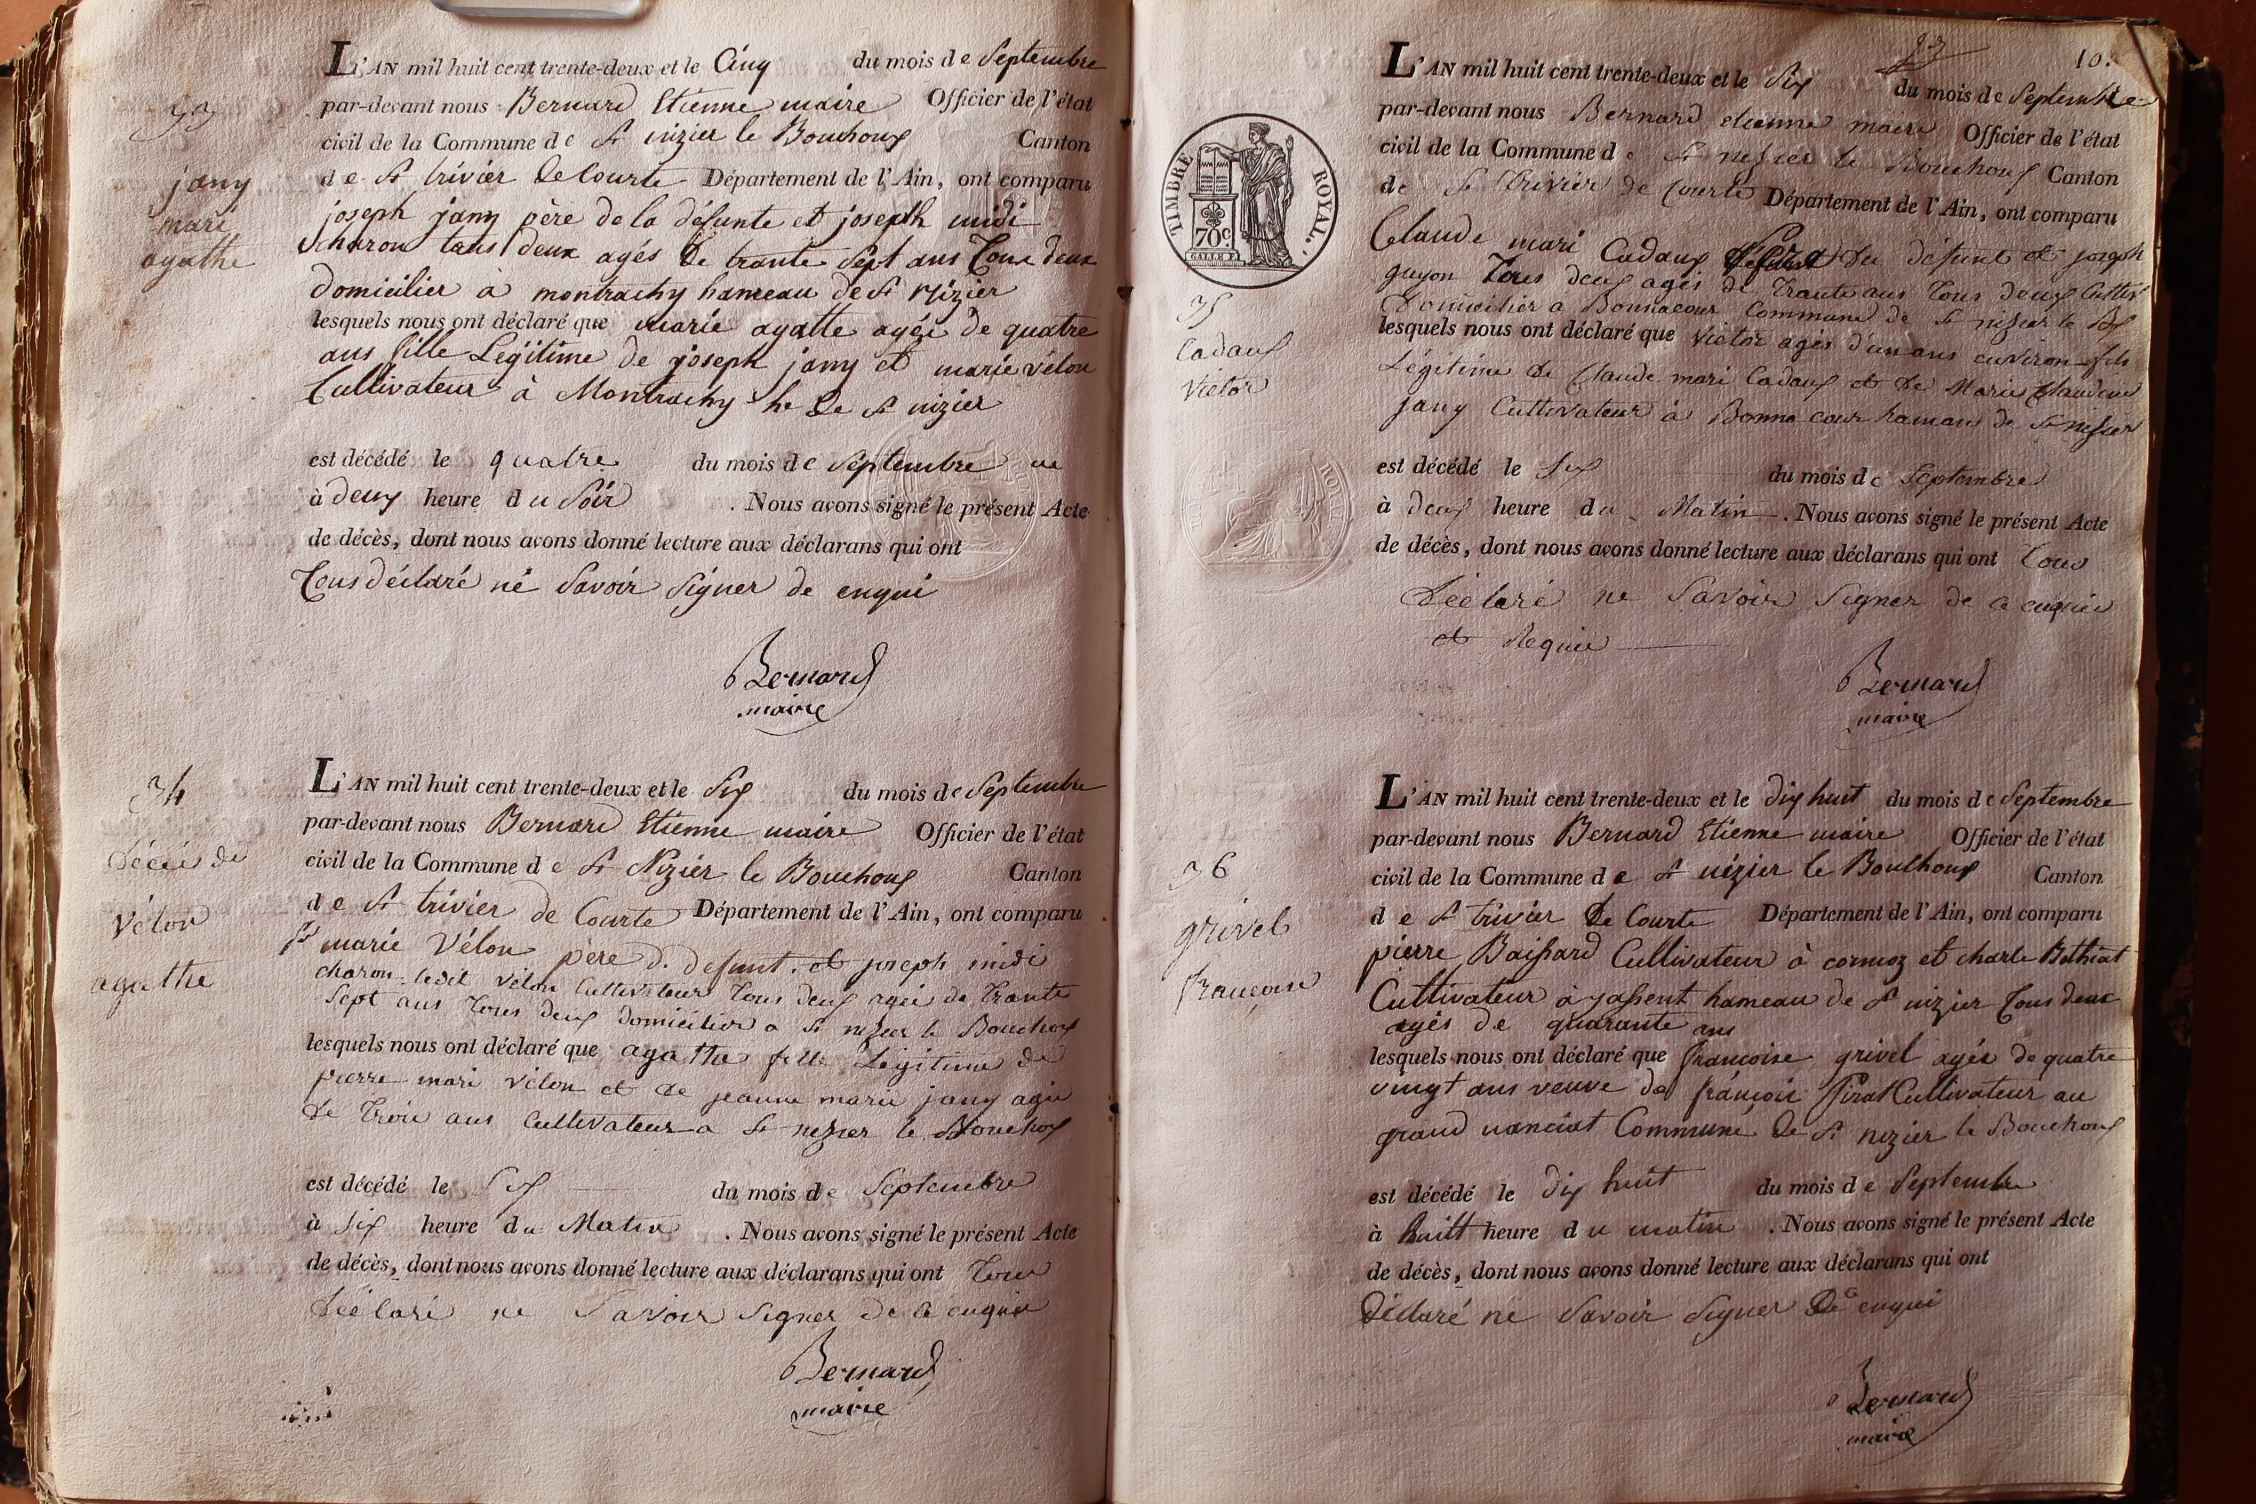 33
jany
mari
agathe
L'AN mil huit cent trente-deux et le Cinq du mois de Septembre
par-devant nous Bernard Etienne maire Officier de l'état
civil de la Commune de St nizier le Bouchoux Canton
de St trivier de Courte Département de l'Ain, ont comparu
joseph jany père de la défunte et joseph midi
charon tous deux agés de trante Sept ans Tous deux
domicilier à montrachy hameau de St Nizier
lesquels nous ont déclaré que marie agatte agée de quatre
ans fille Légitime de joseph jany et marie vélon
Cultivateur à Montrachy he de St nizier
est décédé le quatre du mois de Septembre
à deux heure du Soir . Nous avons signé le présent Acte
de décès, dont nous avons donné lecture aux déclarans qui ont
Tous déclaré né Savoir Signer de enqui
Bernard
maire
34
Décée de
Vélon
agathe
L'AN mil huit cent trente-deux et le Six du mois de Septembre
par-devant nous Bernard Etienne maire Officier de l'état
civil de la Commune de St Nizier le Bouchoux Canton
de St trivier de Courte Département de l'Ain, ont comparu
marie Vélon père d. defunt. et joseph midi
charon ledit vélon Cultivateur Tous deux agée de Trante
Sept ans Tous deux domicilier a St nizier le Bouchoux
lesquels nous ont déclaré que agathe fille Légitime de
pierre mari vélon et de jeanne marie jany agée
de Trois ans Cultivateur a St nizier le Bouchoux
est décédé le Six du mois de Septembre
à Six heure du Matin . Nous avons signé le présent Acte
de décès, dont nous avons donné lecture aux déclarans qui ont Tous
Déclaré ne Savoir Signer de ce enquie
Bernard
maire
10.
TIMBRE ROYAL.
70c.
35
Cadoux
Victor
L'AN mil huit cent trente-deux et le Six du mois de Septembre
par-devant nous Bernard etienne maire Officier de l'état
civil de la Commune de St nizier le Bouchoux Canton
de St Trivier de Courte Département de l'Ain, ont comparu
Claude mari Cadoux du défunt et joseph
guyon Tous deux agés de Trante ans Tous deux Cultiv
Domicilier a Bonnacour Commune de St nizier le Bx
lesquels nous ont déclaré que Victor agés d'un ans environ fils
Légitime de Claude mari Cadoux et de Marie Claudine
jany Cultivateur à Bonna cour hamau de St nizier
est décédé le Six du mois de Septembre
à Deux heure du Matin . Nous avons signé le présent Acte
de décès, dont nous avons donné lecture aux déclarans qui ont Tous
Déclaré ne Savoir Signer de ce enquie
et Requie
Bernard
maire
36
grivel
francoise
L'AN mil huit cent trente-deux et le dix huit du mois de Septembre
par-devant nous Bernard Etienne maire Officier de l'état
civil de la Commune de St nizier le Bouchoux Canton
de St trivier de Courte Département de l'Ain, ont comparu
pierre Baissard Cultivateur à cormoz et charle Bothiat
Cultivateur à jassent hameau de St nizier Tous deux
agés de quarante ans
lesquels nous ont déclaré que francoise grivel agée de quatre
vingt ans veuve de françois Pirat Cultivateur au
grand vanciat Commune de St nizier le Bouchoux
est décédé le dix huit du mois de Septembre
à huitt heure du matin . Nous avons signé le présent Acte
de décès, dont nous avons donné lecture aux déclarans qui ont
Déclaré né Savoir Signer De enqui
Bernard
maire